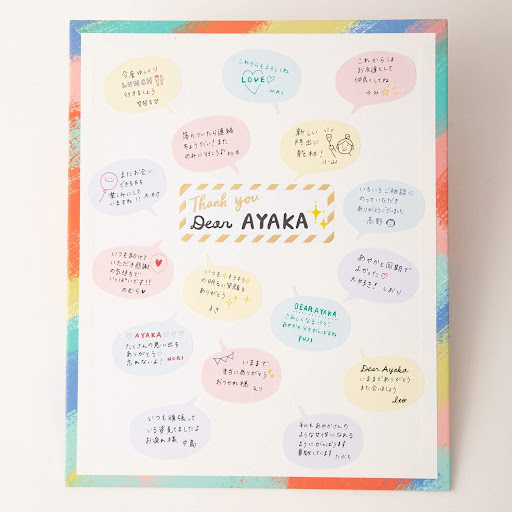 今度ゆっくり
LUNCH
行きましょう
これからもよろしくね
LOVE
MAI
これからは
お友達として
仲良くしてね
ゆみ
落ちついたら連絡
ちょうだい!また
のみに行こうね
新しい
門出に
乾杯!
小山
またお会い
できる日を
楽しみにして
いますね!!
Thank you
Dear AYAKA
いろいろご相談に
のっていただき
ありがとうございました
高野
いつも助けて
いただき感謝
の気持ちで
いっぱいです!!
のむら
いつも
の明るい笑顔を
ありがとう
まき
あやかと同期で
よかった
大好きだ!しおり
DEAR AYAKA
さみしくなるけど
FUJI
AYAKA
たくさんの思い出を
ありがとう
忘れないよ!
MORI
いままで
本当にありがとう
おつかれ様
Dear Ayaka
いままでありがとう
また会いましょう
leo
いつも頑張って
いる姿見てましたよ
お疲れ様 中島
私もあやかさんの
ような女性になれる
ようにがんばります